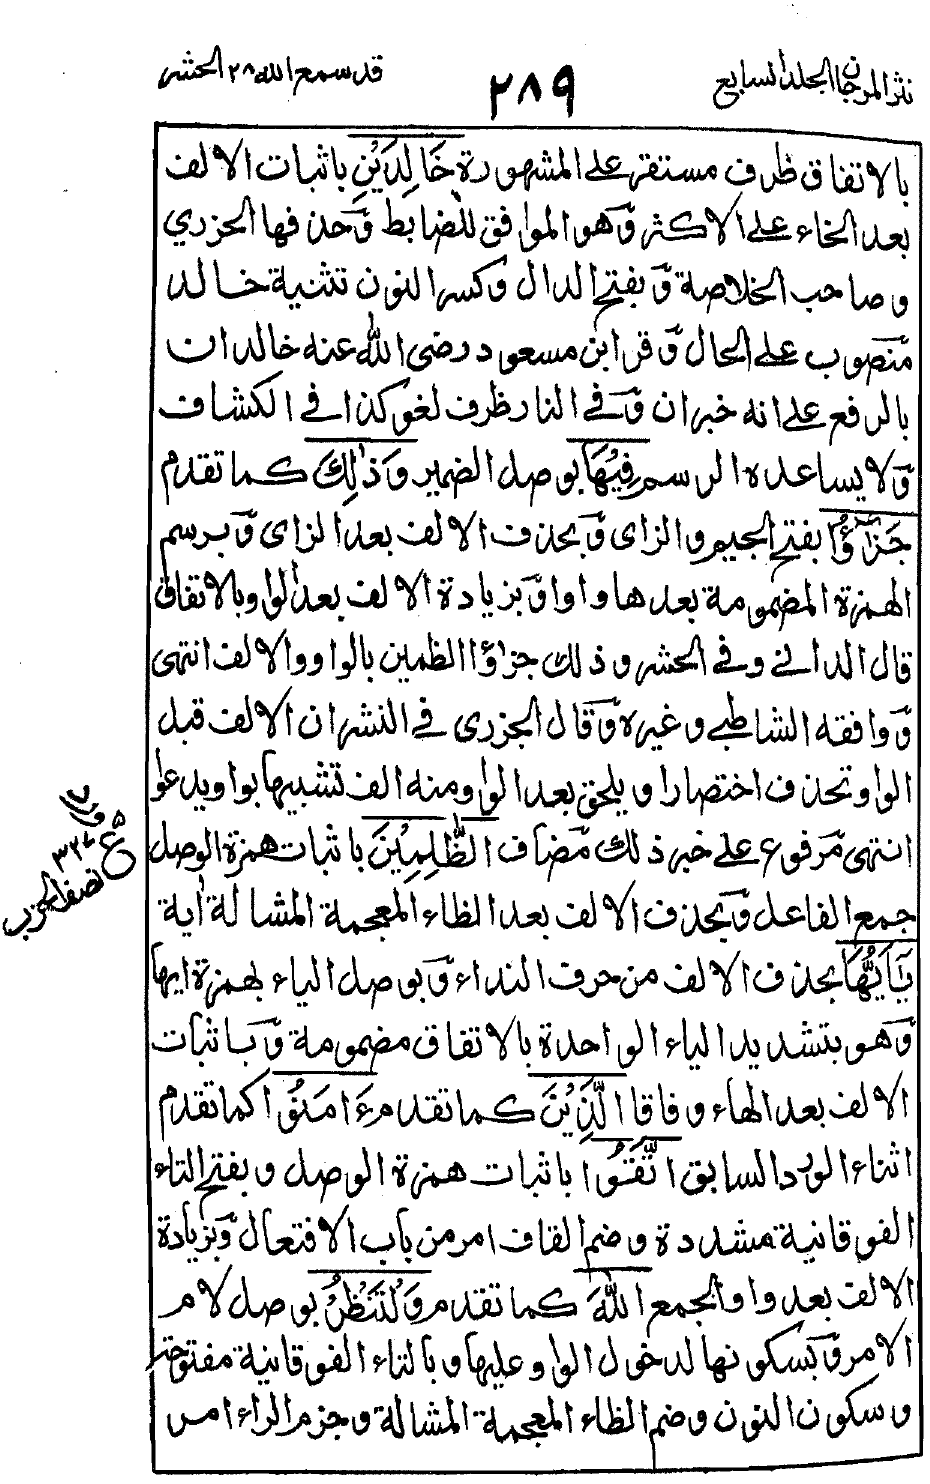 نثر المرجان الجلد السابع
٢٨٩
قد سمع الله ٢٨ الحشر
بالاتفاق ظرف مستقر على المشهورة خَالِدَيْنِ باثبات الالف
بعد الخاء على الاكثر وَهو الموافق للضابط وَحذفها الجزري
وصاحب الخلاصة وَبفتح الدال وَكسر النون تثنية خالد
منصوب على الحال وَقرا ابن مسعود رضى الله عنه خالدان
بالرفع على انه خبر ان وَفي النار ظرف لغو كذا في الكشاف
وَلا يساعده الرسم فِيْهَا بوصل الضمير وَذٰلِكَ كما تقدم
جَزٰٓؤُا بفتح الجيم والزاى وَبحذف الالف بعد الزاى وَبرسم
الهمزة المضمومة بعدها واوا وَبزيادة الالف بعد الواو بالاتفاق
قال الداني وفي الحشر وذلك جزٰؤا الظلمين بالواو والالف انتهى
وَوافقه الشاطبي وغيره وَقال الجزرى في النشر ان الالف قبل
الواو تحذف اختصارا ويلحق بعد الواو منه الف تشبيها بواو يدعوا
انتهى مَرفوع على خبر ذلك مَضاف الظّٰلِمِيْنَ باثبات همزة الوصل
جمع الفاعل وَبحذف الالف بعد الظاء المعجمة المشالة اٰية
يٰٓاَيُّهَا بحذف الالف من حرف النداء وَبوصل الياء بهمزة ايها
وَهو بتشديد الياء الواحدة بالاتفاق مضمومة وَباثبات
الالف بعد الهاء وفاقا الَّذِيْنَ كما تقدم ءَامَنُوْا كما تقدم
اثناء الورد السابق اتَّقُوا باثبات همزة الوصل وبفتح التاء
الفوقانية مشددة وضم القاف امر من باب الافتعال وَبزيادة
الالف بعد واو الجمع اللّٰهَ كما تقدم وَلْتَنْظُرْ بوصل لام
الامر وَبسكونها لدخول الواو عليها وبالتاء الفوقانية مفتوحة
وسكون النون وضم الظاء المعجمة المشالة وجزم الراء امر من
ع
٣٢٧
نصف الحزب